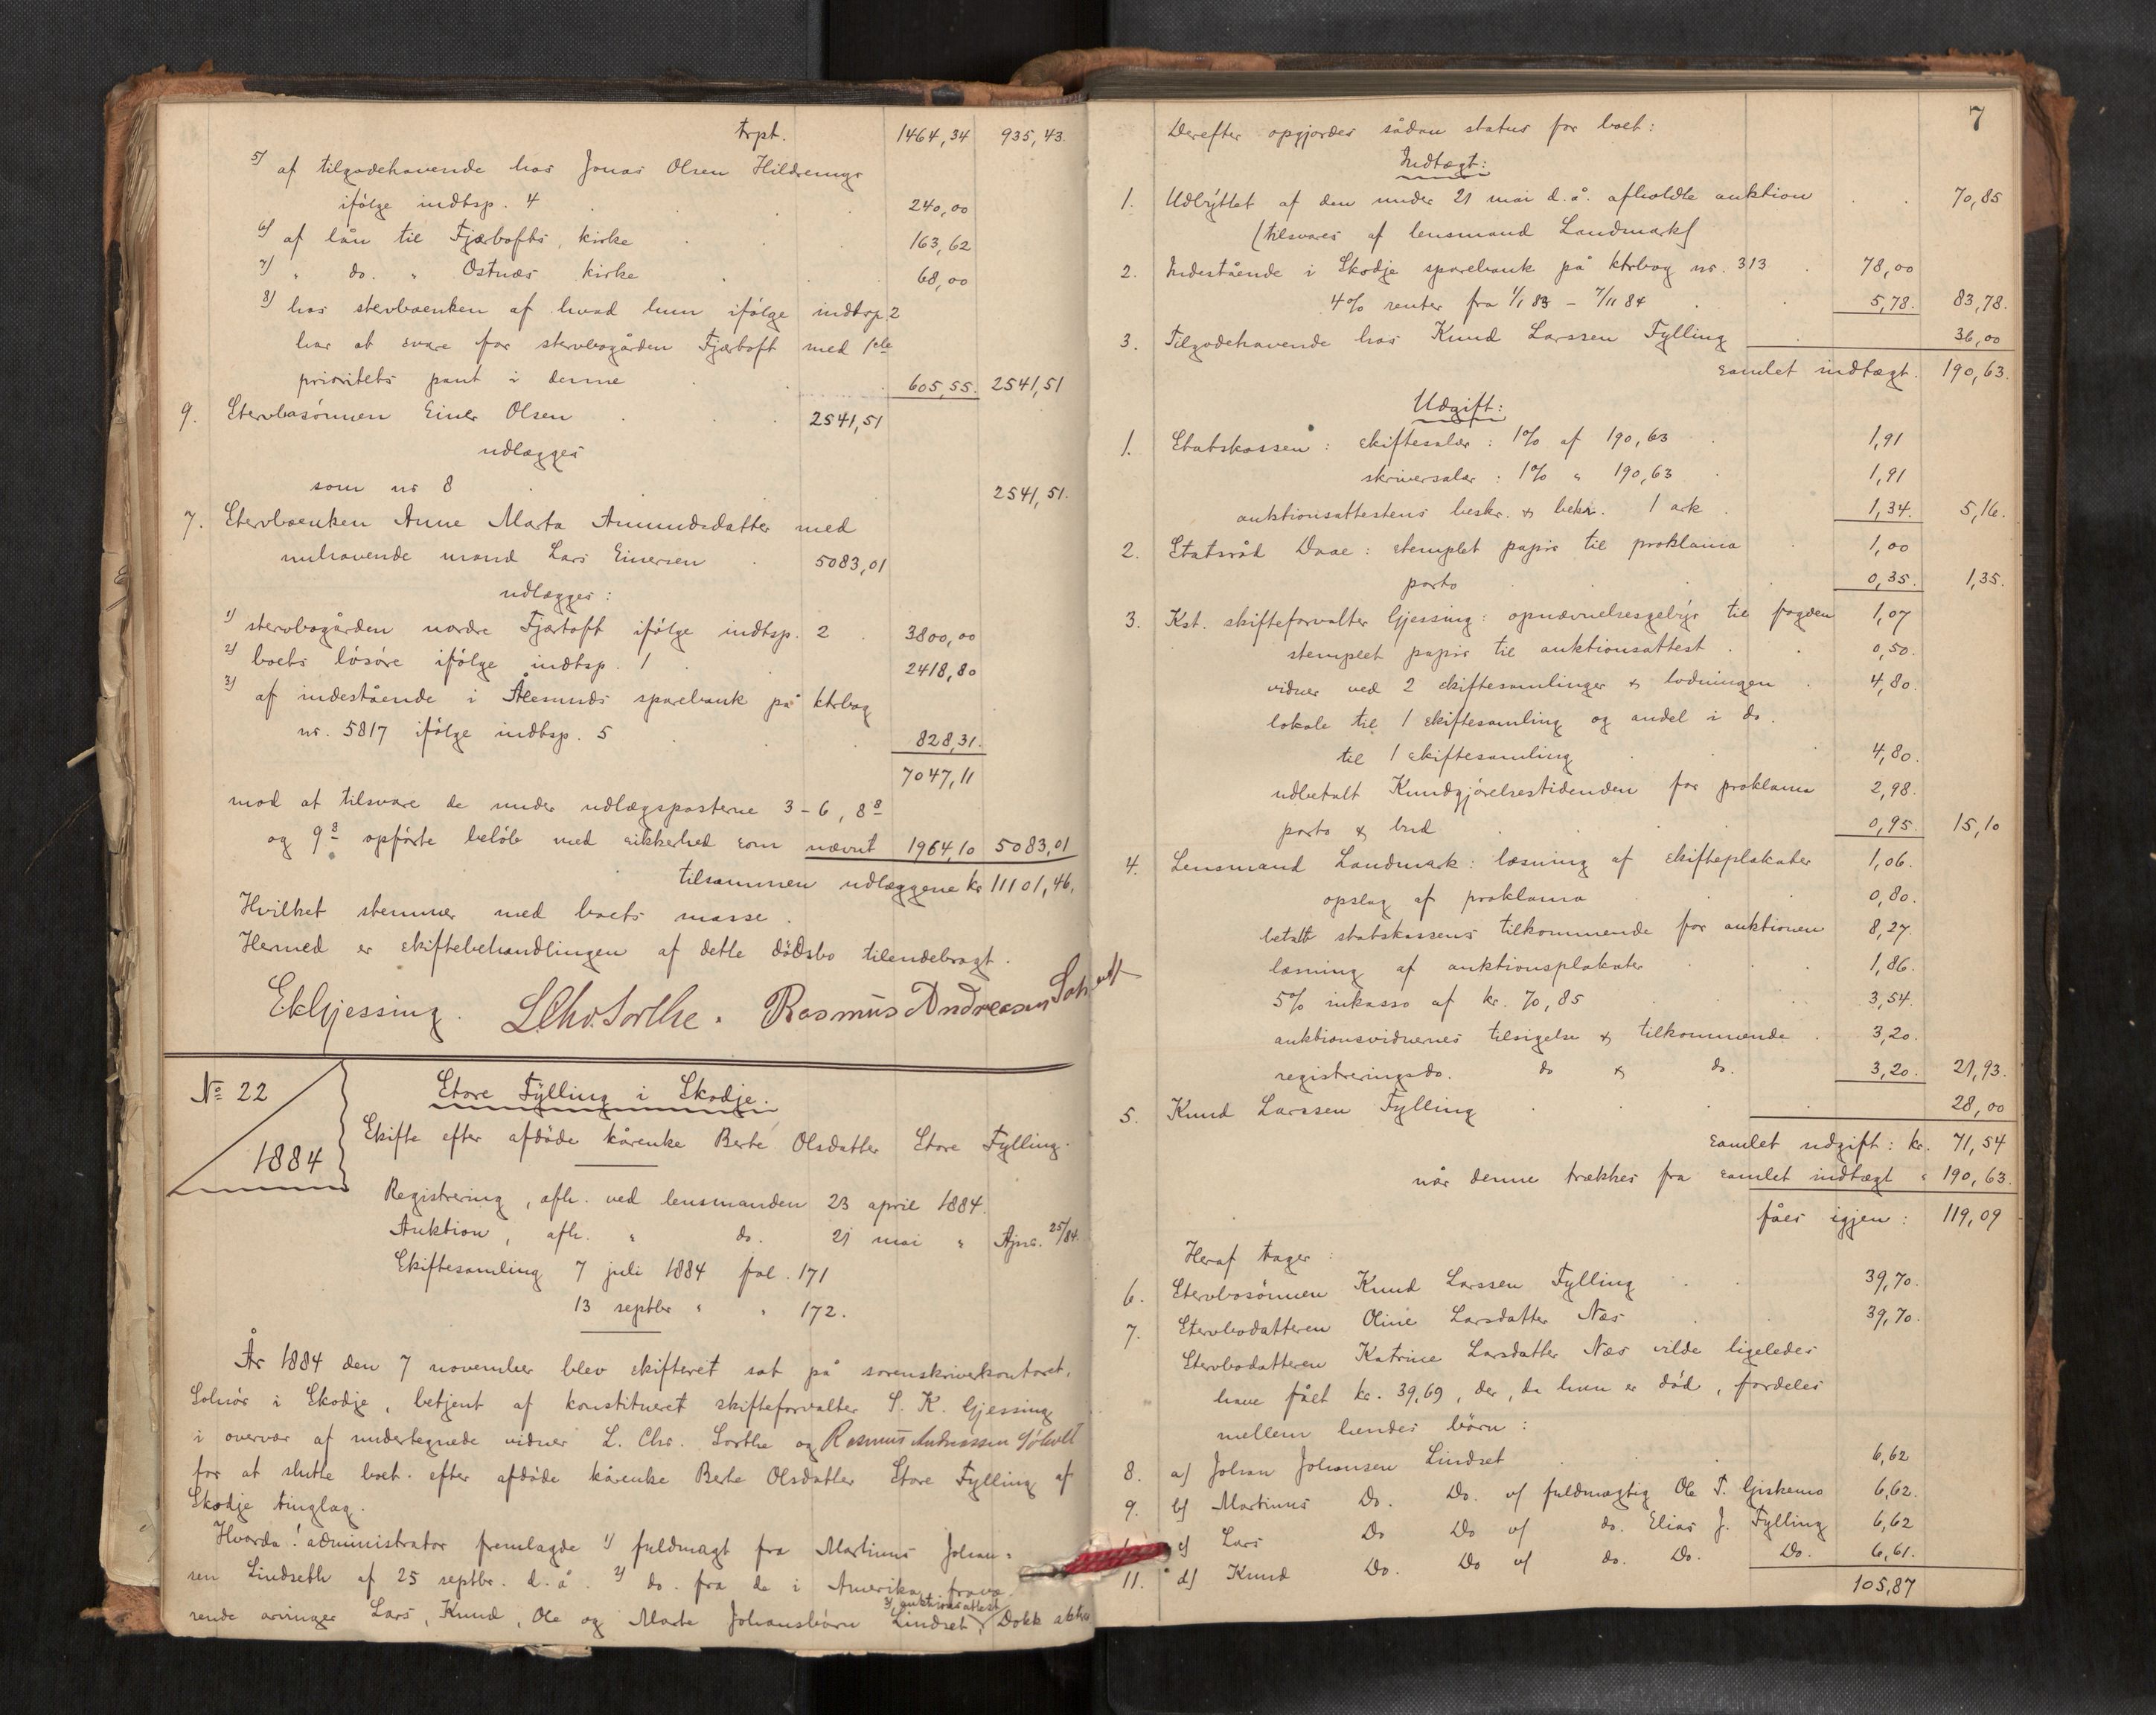 trpt. 1464,34 935,43.
5) af tilgodehavende hos Jonas Olsen Hildrenugs
ifölge indtsp. 4 240,00
6) af lån til Fjærtofts kirke 163,62
7) " do. " Østnæs kirke 68,00
8) hos stervboenken af hvad hun ifölge indtsp. 2
har at svare for stervbogården Fjærtoft med 1ste
prioritets pant i denne 605,55. 2541,51
9. Stervbosönnen Einer Olsen 2541,51
udlægges
som nr 8 2541,51.
7. Stervboenken Anne Marta Amundsdatter med
nuhavende mand Lars Einersen 5083,01
udlægges:
1) stervbogården nordre Fjærtoft ifölge indtsp. 2 3800,00
2) boets lösöre ifölge indtsp. 1 2418,80
3) af indestående i Ålesunds sparebank på ktrbog
nr. 5817 ifölge indtsp. 5 828,31.
7047,11
mod at tilsvare de under udlægsposterne 3-6, 8 8
og 9 8 opförte belöb med sikkerhed som nævnt 1964,10 5083,01
tilsammen udlæggene kr 11101,46.
Hvilket stemmer med boets masse.
Hermed er skiftebehandlingen af dette dödsbo tilendebragt.
EkGjessing. LChr.Sorthe. Rasmus Andreasen Solnöt
No 22
1884
Store Fylling i Skodje.
Skifte efter afdöde kårenke Berte Olsdatter Store Fylling.
Registrering, afh. ved lensmanden 23 april 1884.
Auktion, afh. " do. 21 mai " Ajns. 25/84.
Skiftesamling 7 juli 1884 fol. 171
13 septbr " " 172.
År 1884 den 7 november blev skifteret sat på sorenskriverkontoret,
Solnör i Skodje, betjent af konstitueret skifteforvalter S. K. Gjessing
i overvær af undertegnede vidner L. Chr. Sorthe og Rasmus Andreassen Sóholt
for at slutte boet efter afdöde kårenke Berte Olsdatter Store Fylling af
Skodje tinglag.
Hvorda! administrator fremlagde 1) fuldmagt fra Martinus Johan=
sen Lindseth af 25 septbr. d. å. 2) do. fra de i Amerika fravæ
3) auktionsattest
rende arvinger Lars, Knud, Ole og Marte Johansbörn Lindset, Dokk
7
Derefter opgjordes sådan status for boet:
Indtægt:
1. Udbyttet af den under 21 mai d. å. afholdte auktion 70,85
(tilsvares af lensmand Landmark)
2. Indestående i Skodje sparebank på ktrbog nr. 313 78,00
4% renter fra 1/1 83 - 7/11 84 5,78. 83,78.
3. Tilgodehavende hos Knud Larssen Fylling 36,00
samlet indtægt. 190,63.
Udgift:
1. Statskassen: skiftesalær: 1% af 190,63 1,91
skriversalær: 1% " 190,63 1,91
auktionsattestens beskr. & bekr. 1 ark 1,34. 5,16.
2. Statsråd Daae: stemplet papir til proklama 1,00
porto 0,35. 1,35.
3. Kst. skifteforvalter Gjessing: opnævnelsesgebyr til fogden 1,07
stemplet papir til auktionsattest 0,50.
vidner ved 2 skiftesamlinger & lodningen 4,80.
lokale til 1 skiftesamling og andel i do.
til 1 skiftesamling 4,80.
udbetalt Kundgjörelsestidenden for proklama 2,98.
porto & bud 0,95. 15,10
4. Lensmand Landmark: læsning af skifteplakater 1,06.
opslag af proklama 0,80.
betalt statskassens tilkommende for auktionen 8,27.
læsning af auktionsplakater 1,86.
5% inkasso af kr. 70,85 3,54.
auktionsvidnernes tilsigelse & tilkommende 3,20.
registreringsdo. do & do. 3,20. 21,93.
5. Knud Larssen Fylling 28,00
samlet udgift: kr. 71,54
når denne trækkes fra samlet indtægt " 190,63.
fåes igjen: 119,09
Heraf tager:
6. Stervbosönnen Knud Larssen Fylling 39,70.
7. Stervbodatteren Oline Larsdatter Næs 39,70.
Stervbodatteren Katrine Larsdatter Næs vilde ligeledes
have fået kr. 39,69, der, da hun er död, fordeles
mellem hendes börn:
8. a) Johan Johansen Lindset 6,62
9. b) Martinus Do. Do. v/ fuldmægtig Ole T. Giskemo 6,62.
c) Lars Do Do v/ do. Elias J. Fylling 6,62
11. d) Knud Do. Do v/ do. Do. Do. 6,61.
105,87